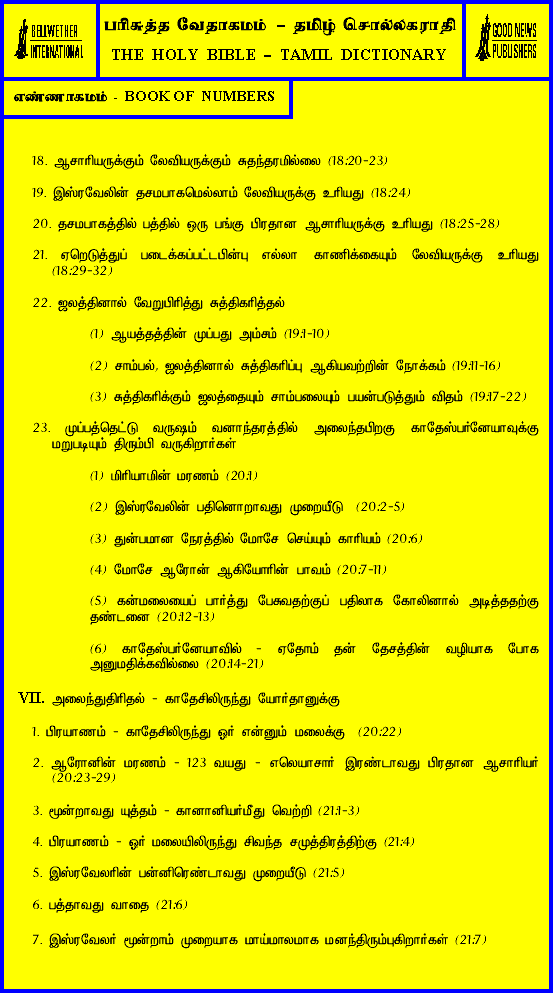 BELLWETHER
INTERNATIONAL
பரிசுத்த வேதாகமம் – தமிழ் சொல்லகராதி
THE HOLY BIBLE – TAMIL DICTIONARY
GOOD NEWS
PUBLISHERS
எண்ணாகமம் - BOOK OF NUMBERS
18. ஆசாரியருக்கும் லேவியருக்கும் சுதந்தரமில்லை (18:20-23)
19. இஸ்ரவேலின் தசமபாகமெல்லாம் லேவியருக்கு உரியது (18:24)
20. தசமபாகத்தில் பத்தில் ஒரு பங்கு பிரதான ஆசாரியருக்கு உரியது (18:25-28)
21. ஏறெடுத்துப் படைக்கப்பட்டபின்பு எல்லா காணிக்கையும் லேவியருக்கு உரியது
(18:29-32)
22. ஜலத்தினால் வேறுபிரித்து சுத்திகரித்தல்
(1) ஆயத்தத்தின் முப்பது அம்சம் (19:1-10)
(2) சாம்பல், ஜலத்தினால் சுத்திகரிப்பு ஆகியவற்றின் நோக்கம் (19:11-16)
(3) சுத்திகரிக்கும் ஜலத்தையும் சாம்பலையும் பயன்படுத்தும் விதம் (19:17-22)
23. முப்பத்தெட்டு வருஷம் வனாந்தரத்தில் அலைந்தபிறகு காதேஸ்பர்னேயாவுக்கு
மறுபடியும் திரும்பி வருகிறார்கள்
(1) மிரியாமின் மரணம் (20:1)
(2) இஸ்ரவேலின் பதினொறாவது முறையீடு (20:2-5)
(3) துன்பமான நேரத்தில் மோசே செய்யும் காரியம் (20:6)
(4) மோசே ஆரோன் ஆகியோரின் பாவம் (20:7-11)
(5) கன்மலையைப் பார்த்து பேசுவதற்குப் பதிலாக கோலினால் அடித்ததற்கு
தண்டனை (20:12-13)
(6) காதேஸ்பர்னேயாவில் - ஏதோம் தன் தேசத்தின் வழியாக போக
அனுமதிக்கவில்லை (20:14-21)
VII. அலைந்துதிரிதல் - காதேசிலிருந்து யோர்தானுக்கு
1. பிரயாணம் - காதேசிலிருந்து ஓர் என்னும் மலைக்கு (20:22)
2. ஆரோனின் மரணம் - 123 வயது - எலெயாசார் இரண்டாவது பிரதான ஆசாரியர்
(20:23-29)
3. மூன்றாவது யுத்தம் - கானானியர்மீது வெற்றி (21:1-3)
4. பிரயாணம் - ஓர் மலையிலிருந்து சிவந்த சமுத்திரத்திற்கு (21:4)
5. இஸ்ரவேலரின் பன்னிரெண்டாவது முறையீடு (21:5)
6. பத்தாவது வாதை (21:6)
7. இஸ்ரவேலர் மூன்றாம் முறையாக மாய்மாலமாக மனந்திரும்புகிறார்கள் (21:7)